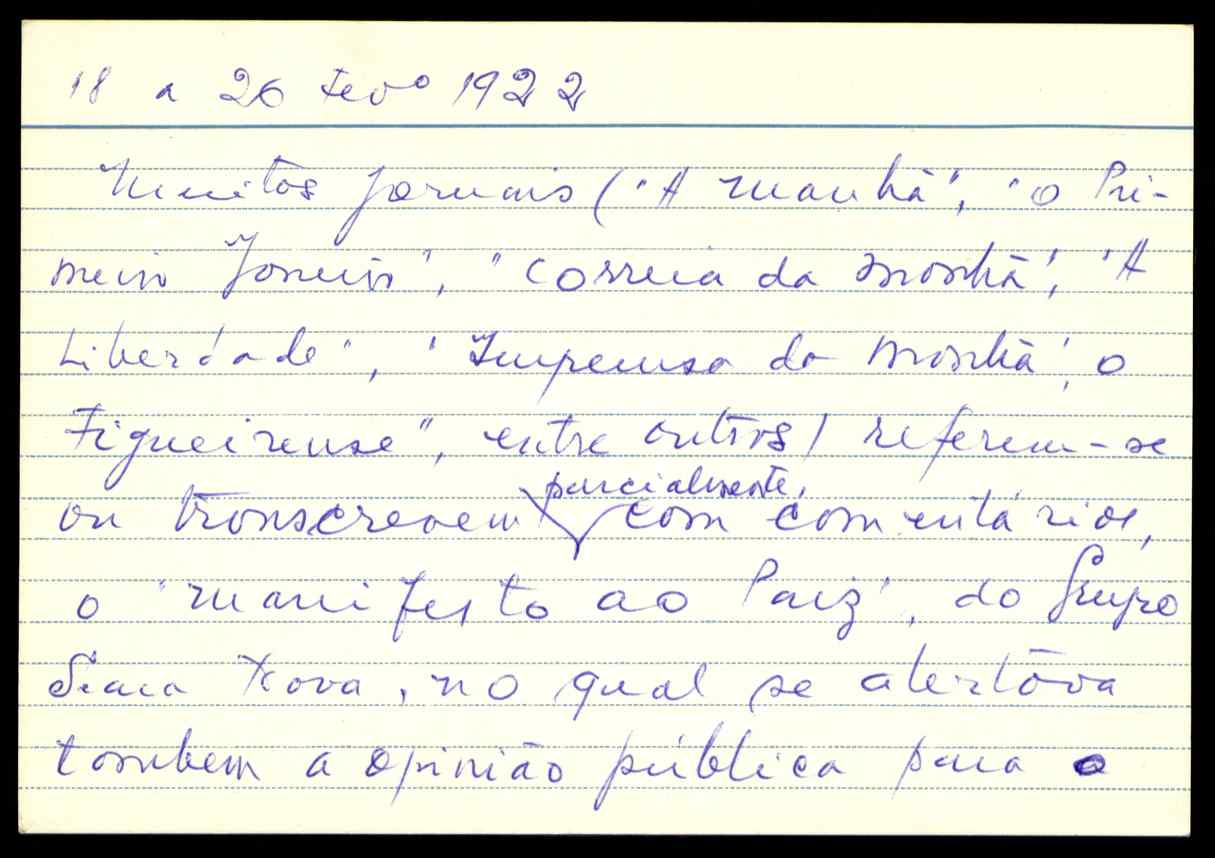 18 a 26 Fevº 1922
Muitos jornais ("A manhã", "O Pri-
meiro Janeiro", "Correia da Manhã", "A
Liberdade", "Imprensa da Manhã", O
Figueirense", entre outros) referem-se
ou transcrevem parcialmente, com comentários,
o "manifesto ao Paiz", do Grupo
Seara Nova, no qual se alertava
tambem a opinião pública para o